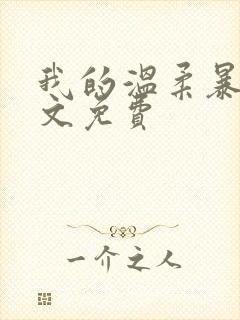 我的温柔暴
文免费
一介之人